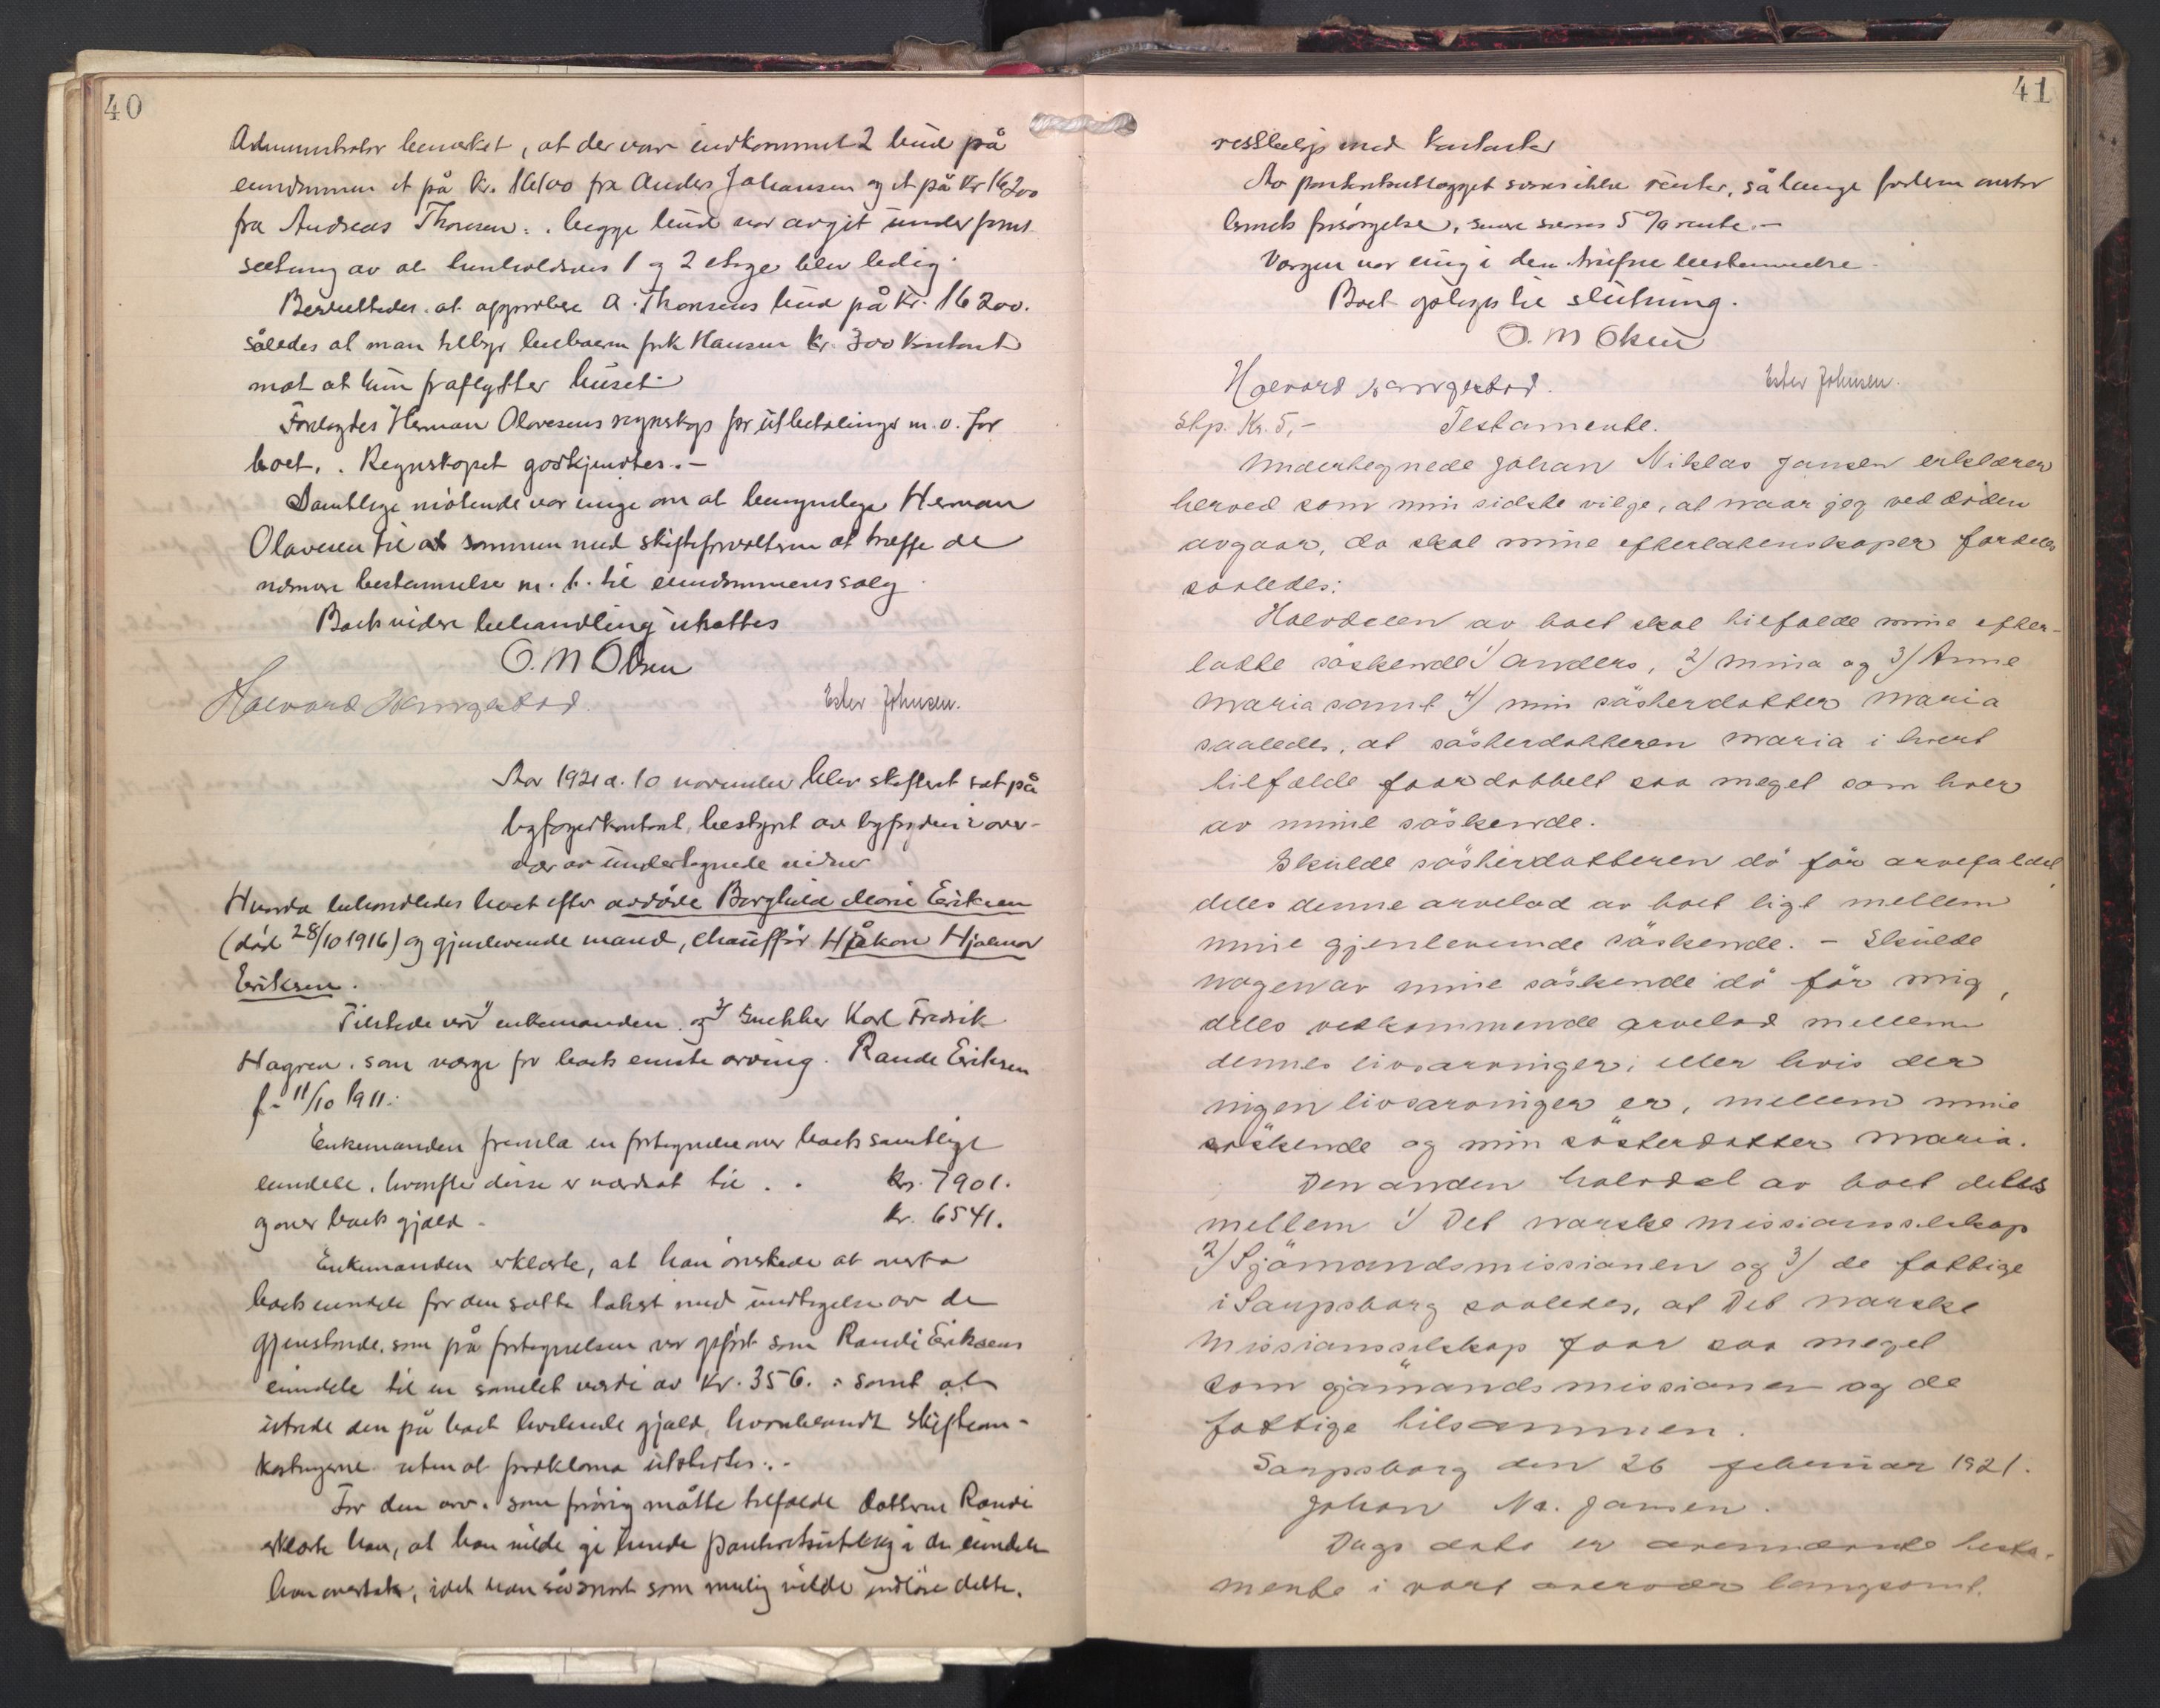 40
Administrator bemerket, at der var indkommet 2 bud på
eiendommen et på kr. 16100 fra Anders Johansen og et på kr 16200
fra Andreas Thoresen. . begge bud var avgit under forut
setning av at beboelsen 1 og 2 etage blev ledig.
Besluttedes at approbere A. Thoresens bud på kr. 16200.
således at man tilbyr leieboeren frk Hansen kr. 300 kontant
mot at hun fraflytter huset.
Forelagdes Herman Olavesens regnskap for utbetalinger m.v. for
boet. . Regnskapet godkjendtes. -
Samtlige møtende var enige om at bemyndige Herman
Olavesen til at sammen med skifteforvalteren at træffe de
nærmere bestemmelser m. h. til eiendommens salg.
Boets videre behandling utsattes
O. M Olsen
Halvard Ester Johnsen.
Aar 1921 d. 10 november blev skifteret sat på
byfogedkontoret, bestyret av byfogden i over-
vær av undertegnede vidner
Hvorda behandledes boet efter avdøde Borghild Marie Eriksen
(død 28/10 1916) og gjenlevende mand, chauffør Håkon Hjalmar
Eriksen.
Tilstede var 1) enkemanden og 2) Snekker Karl Fredrik
Hagren. som verge for boets eneste arving. Randi Eriksen
f. 11/10 1911.
Enkemanden fremla en fortegnelse over boets samtlige
eiendele. hvorefter disse er værdsat til . . kr. 7901.
og over boets gjæld - kr. 6541.
Enkemanden erklærte, at han ønskede at overta
boets eiendele for den satte takst med undtagelse av de
gjenstande, som på fortegnelsen var opført som Randi Eriksens
eiendele til en samlet værdi av kr. 356. . samt at
utrede den på boet hvilende gjæld, hvoriblandt skifteom-
kostningerne uten at proklama utstedtes. . -
For den arv. som forøvrig måtte tilfalde datteren Randi
erklærte han, at han vilde gi hende panteretsutlæg i de eiendele
han overtok, idet han så snart som mulig vilde indløse dette.
41
med kontanter
Av panteretsutlægget svares ikke renter, så længe faderen overtar
barnets forsørgelse, senere svares 5 % rente. -
Vergen var enig i den trufne bestemmelse.
Boet optages til slutning.
O. M Olsen
Halvard Ester Johnsen.
Stp. Kr. 5,- Testamente.
Undertegnede Johan Niklas Jansen erklærer
herved som min sidste vilje, at naar jeg ved døden
avgaar, da skal mine efterlatenskaper fordeles
saaledes:
Halvdelen av boet skal tilfalde mine efter-
latte söskende 1/ Anders, 2/ Mina og 3/ Anne
Maria samt 4/ min sösterdatter Maria
saaledes, at sösterdatteren Maria i hvert
tilfælde faar dobbelt saa meget som hver
av mine söskende.
Skulde sösterdatteren dö för arvefaldet,
deles denne arvelod av boet ligt mellem
mine gjenlevende söskende. - Skulde
nogen av mine söskende dö för mig,
deles vedkommende arvelod mellem
dennes livsarvinger, eller hvis der
ingen livsarvinger er, mellem mine
söskende og min sösterdatter Maria.
Den anden halvdel av boet deles
mellem 1/ Det norske missionsselskap
2/ Sjömandsmissionen og 3/ de fattige
i Sarpsborg saaledes, at Det norske
missionsselskap faar saa meget
som sjömandsmissionen og de
fattige tilsammen.
Sarpsborg den 26 februar 1921.
Johan N. Jansen.
Dags dato er ovennævnte testa-
mente i vort overvær